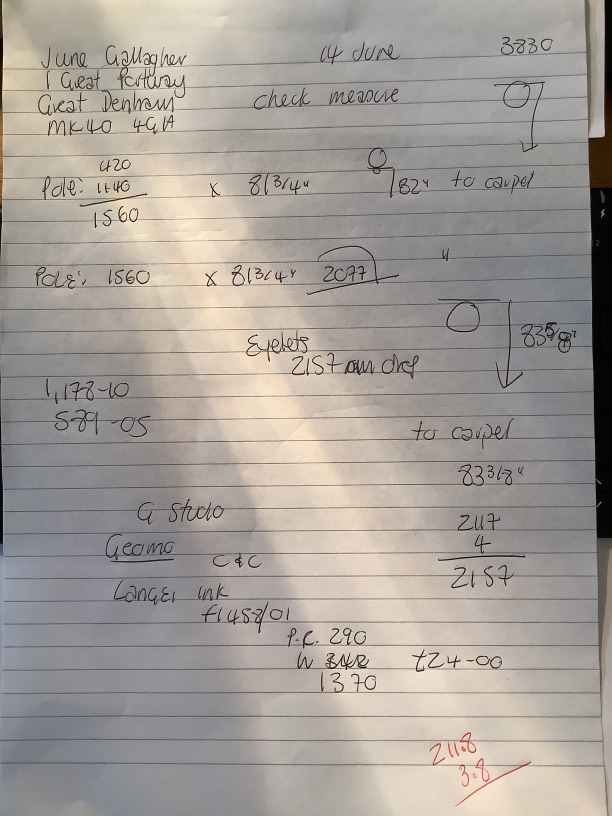 June Gallagher 14 June 3830
1 Great Portway
Great Denham check measure
MK40 4GA
420
Pole: 1140 x 81 3/4" 82" to carpet
1560
Pole: 1560 x 81 3/4" 2077 "
Eyelets 83 5/8"
2157 mm drop
1,178-10
589-05
to carpet
83 3/8"
G Studio
2117
Geomo C&C 4
2157
ink
F1458/01
P.R. 290
W £24-00
1370
211.8
3.8